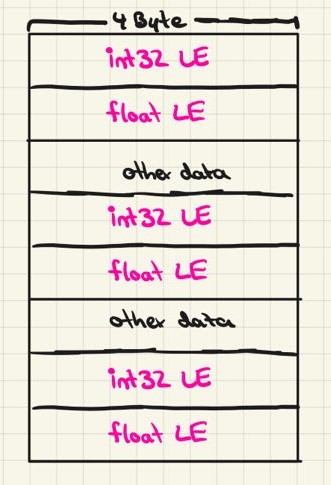 4 Byte
int32 LE
float LE
other data
int32 LE
float LE
other data
int32 LE
float LE